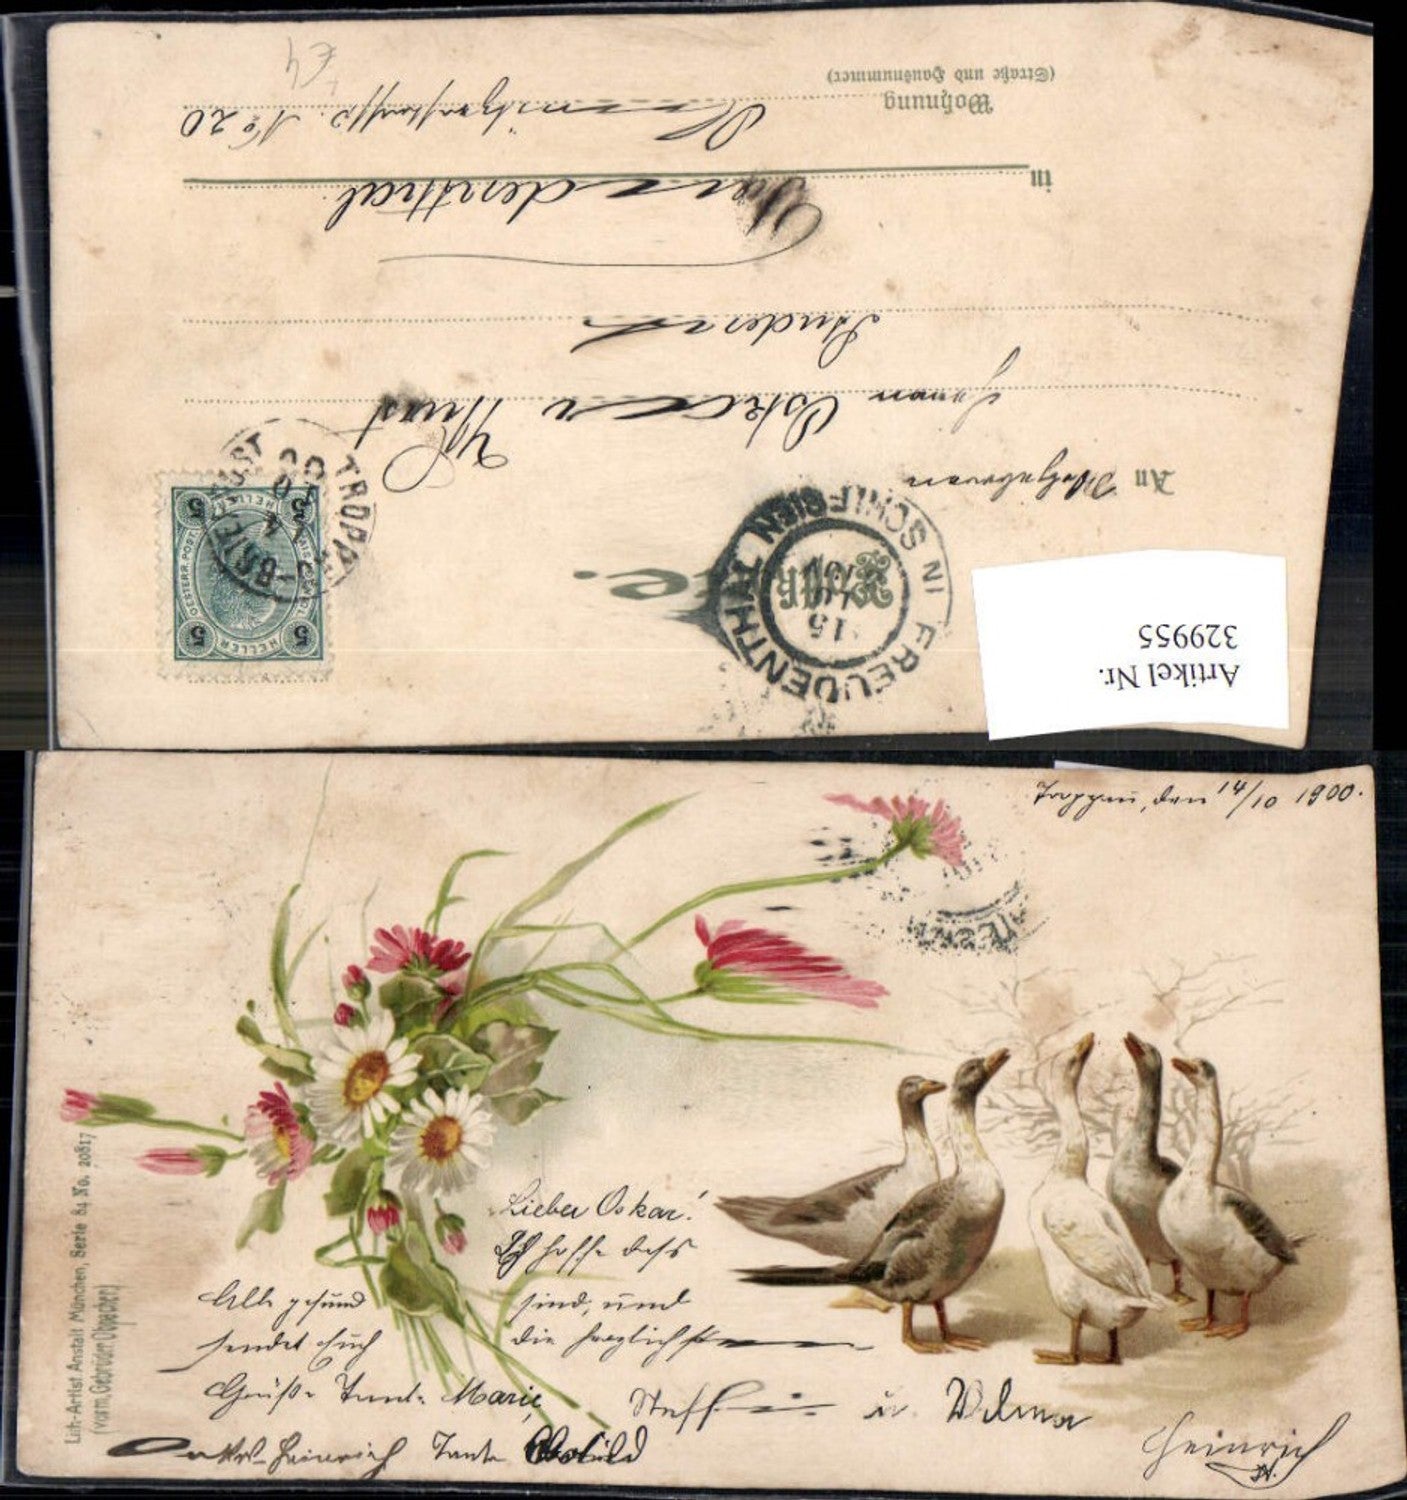 An
Herrn Oskar
in Freudenthal
No 20
Wohnung
(Straße und Hausnummer)
FREUDENTHAL IN SCHLESIEN
15
TROPPAU
OESTERR. POST.
HELLER
5 5
5 5
Artikel Nr.
329955
Troppau, den 14/10 1900.
Lieber Oskar!
Ich hoffe dass
Alle gesund sind, und
sendet Euch die herzlichsten
Grüße Tante Marie, Steffi u. Wilma
Onkel Heinrich Tante Heinrich
Lith.-Artist Anstalt München, Serie 84 No. 20817
(vorm. Gebrüder Obpacher)